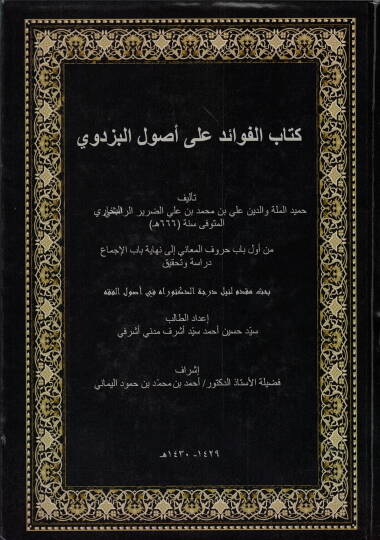 كتاب الفوائد على أصول البزدوي
تأليف
حميد الملة والدين علي بن محمد بن علي الضرير الرامشي البخاري
المتوفى سنة (٦٦٦هـ)
من أول باب حروف المعاني إلى نهاية باب الإجماع
دراسة وتحقيق
بحث مقدم لنيل درجة الدكتوراه في أصول الفقه
إعداد الطالب
سيّد حسين أحمد سيّد أشرف مدني أشرفي
إشراف
فضيلة الأستاذ الدكتور/ أحمد بن محمّد بن حمود اليماني
١٤٢٩- ١٤٣٠هـ